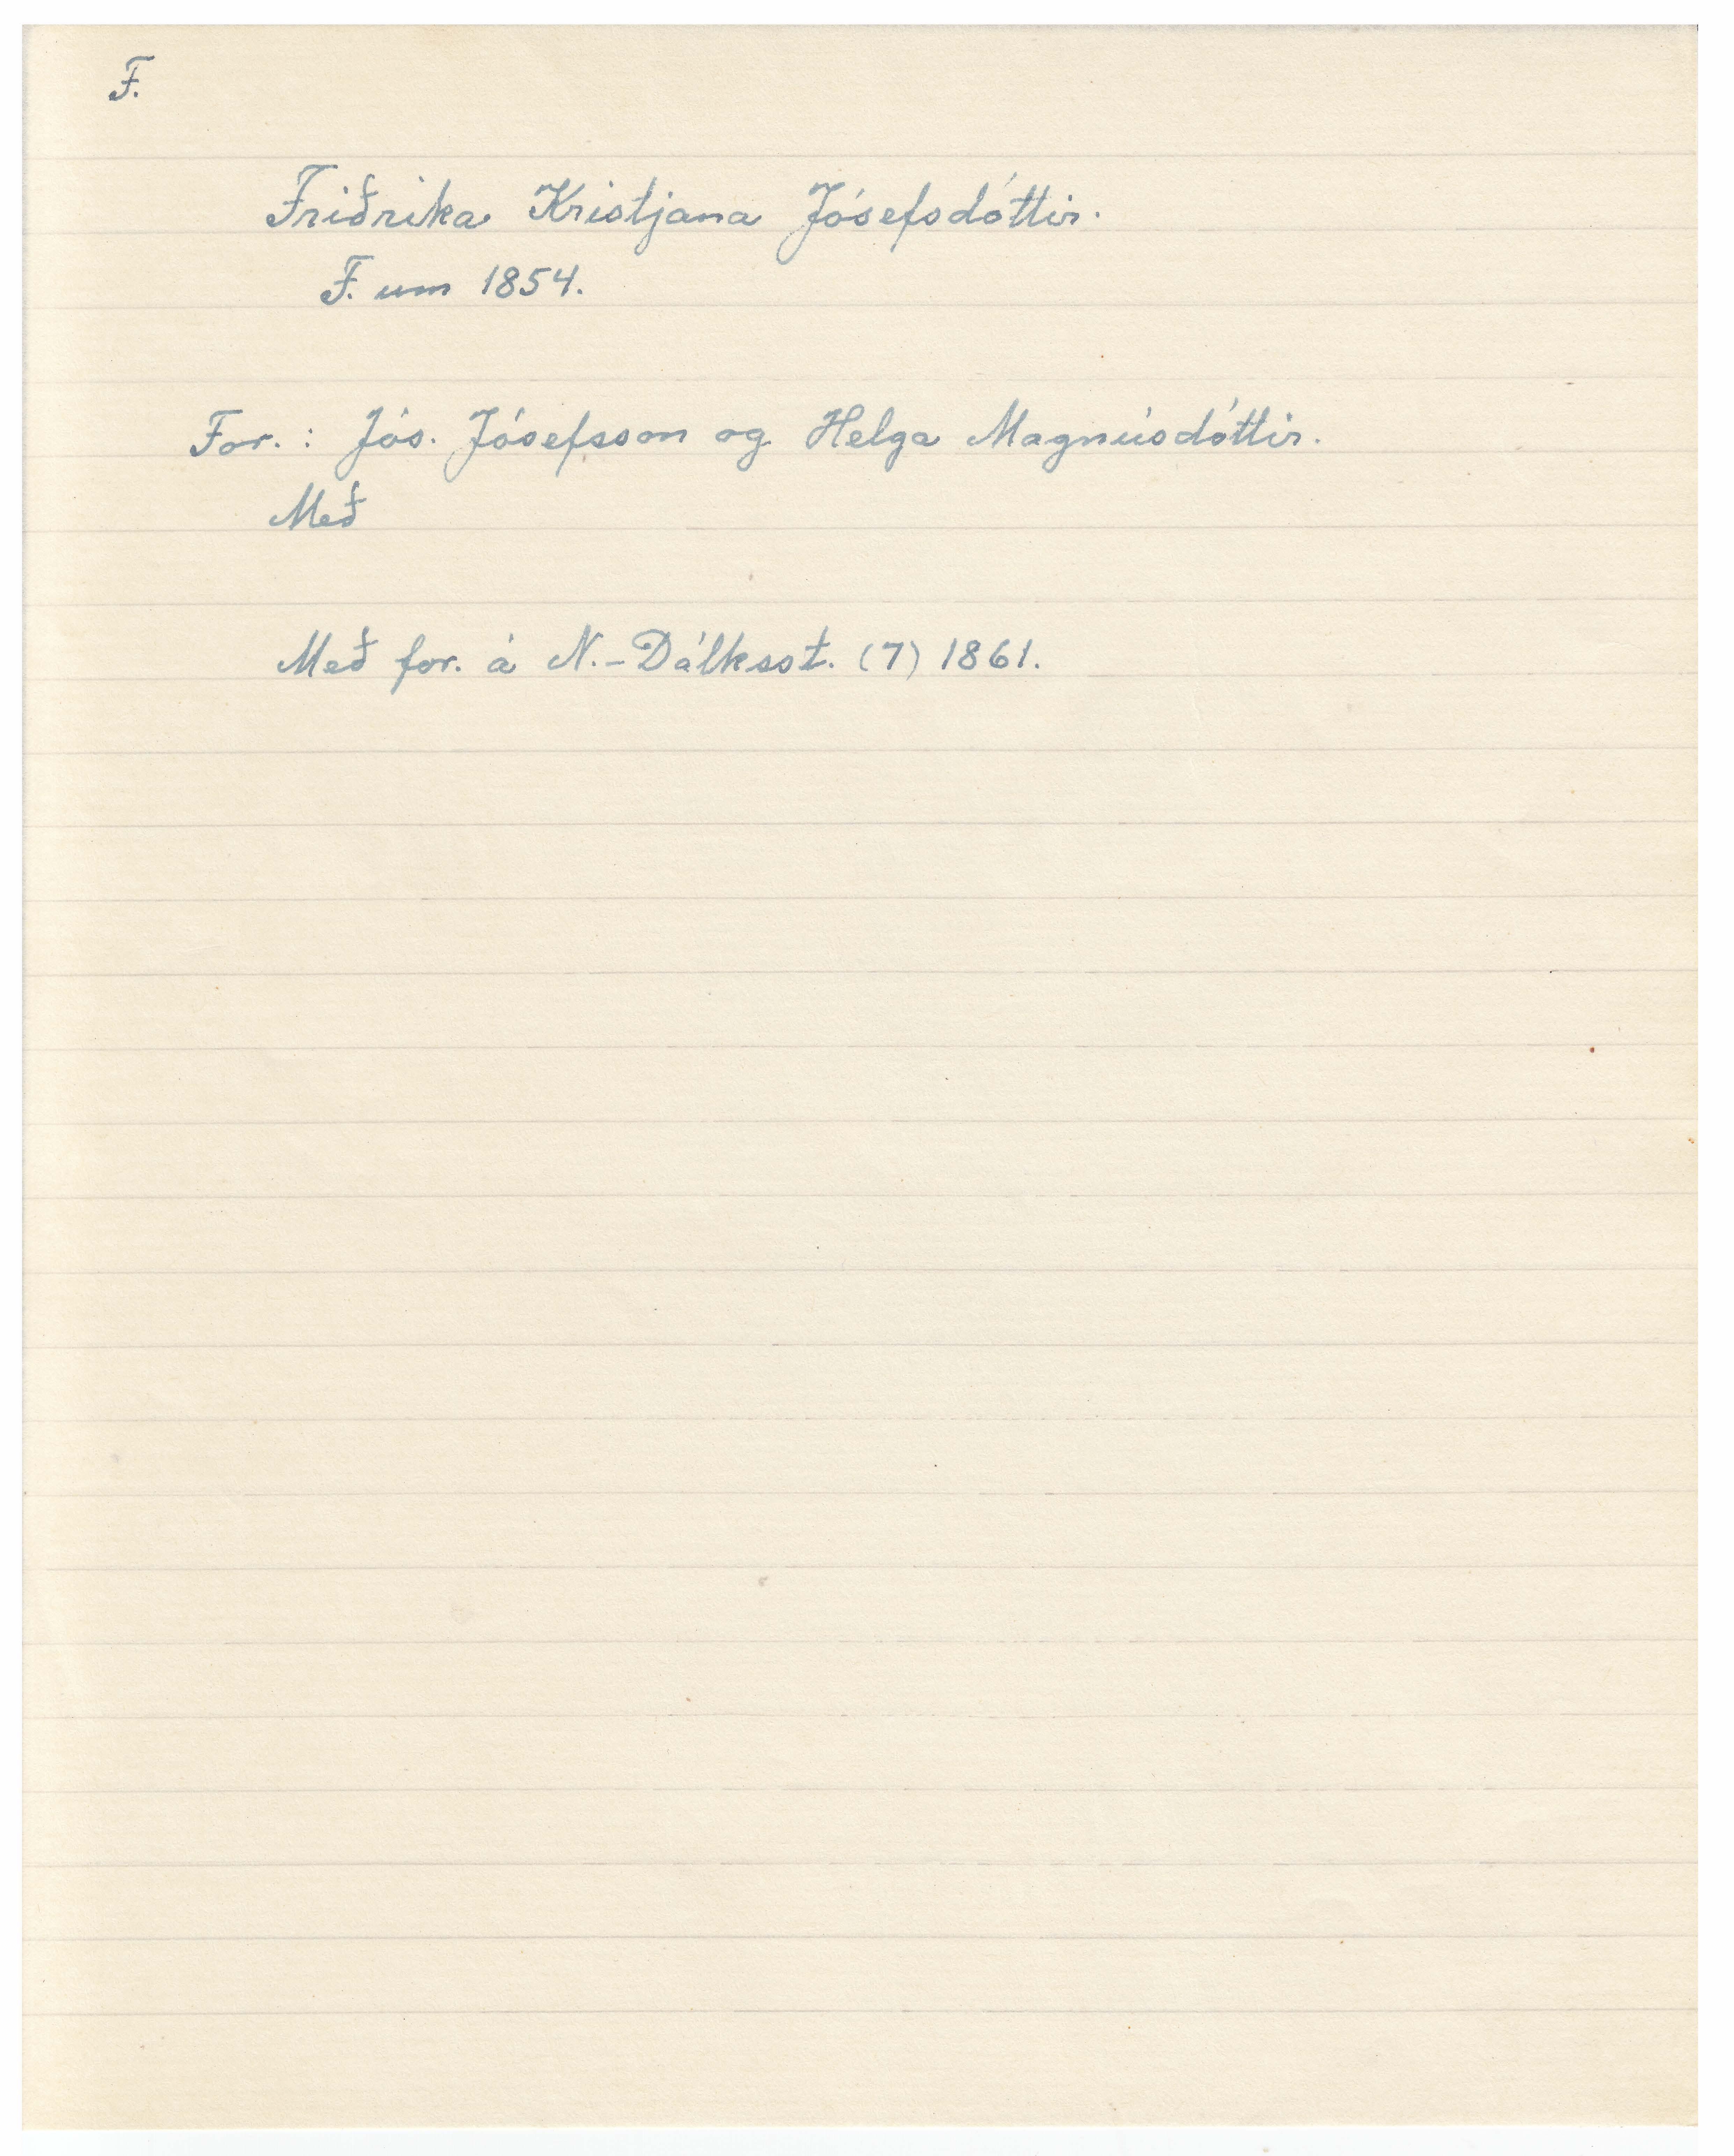 F.
Friðrika Kristjana Jósefsdóttir.
F. um 1854.
For. : Jós. Jósefsson og Helga Magnúsdóttir.
Með
Með for. á N.-Dálksst. (7) 1861.